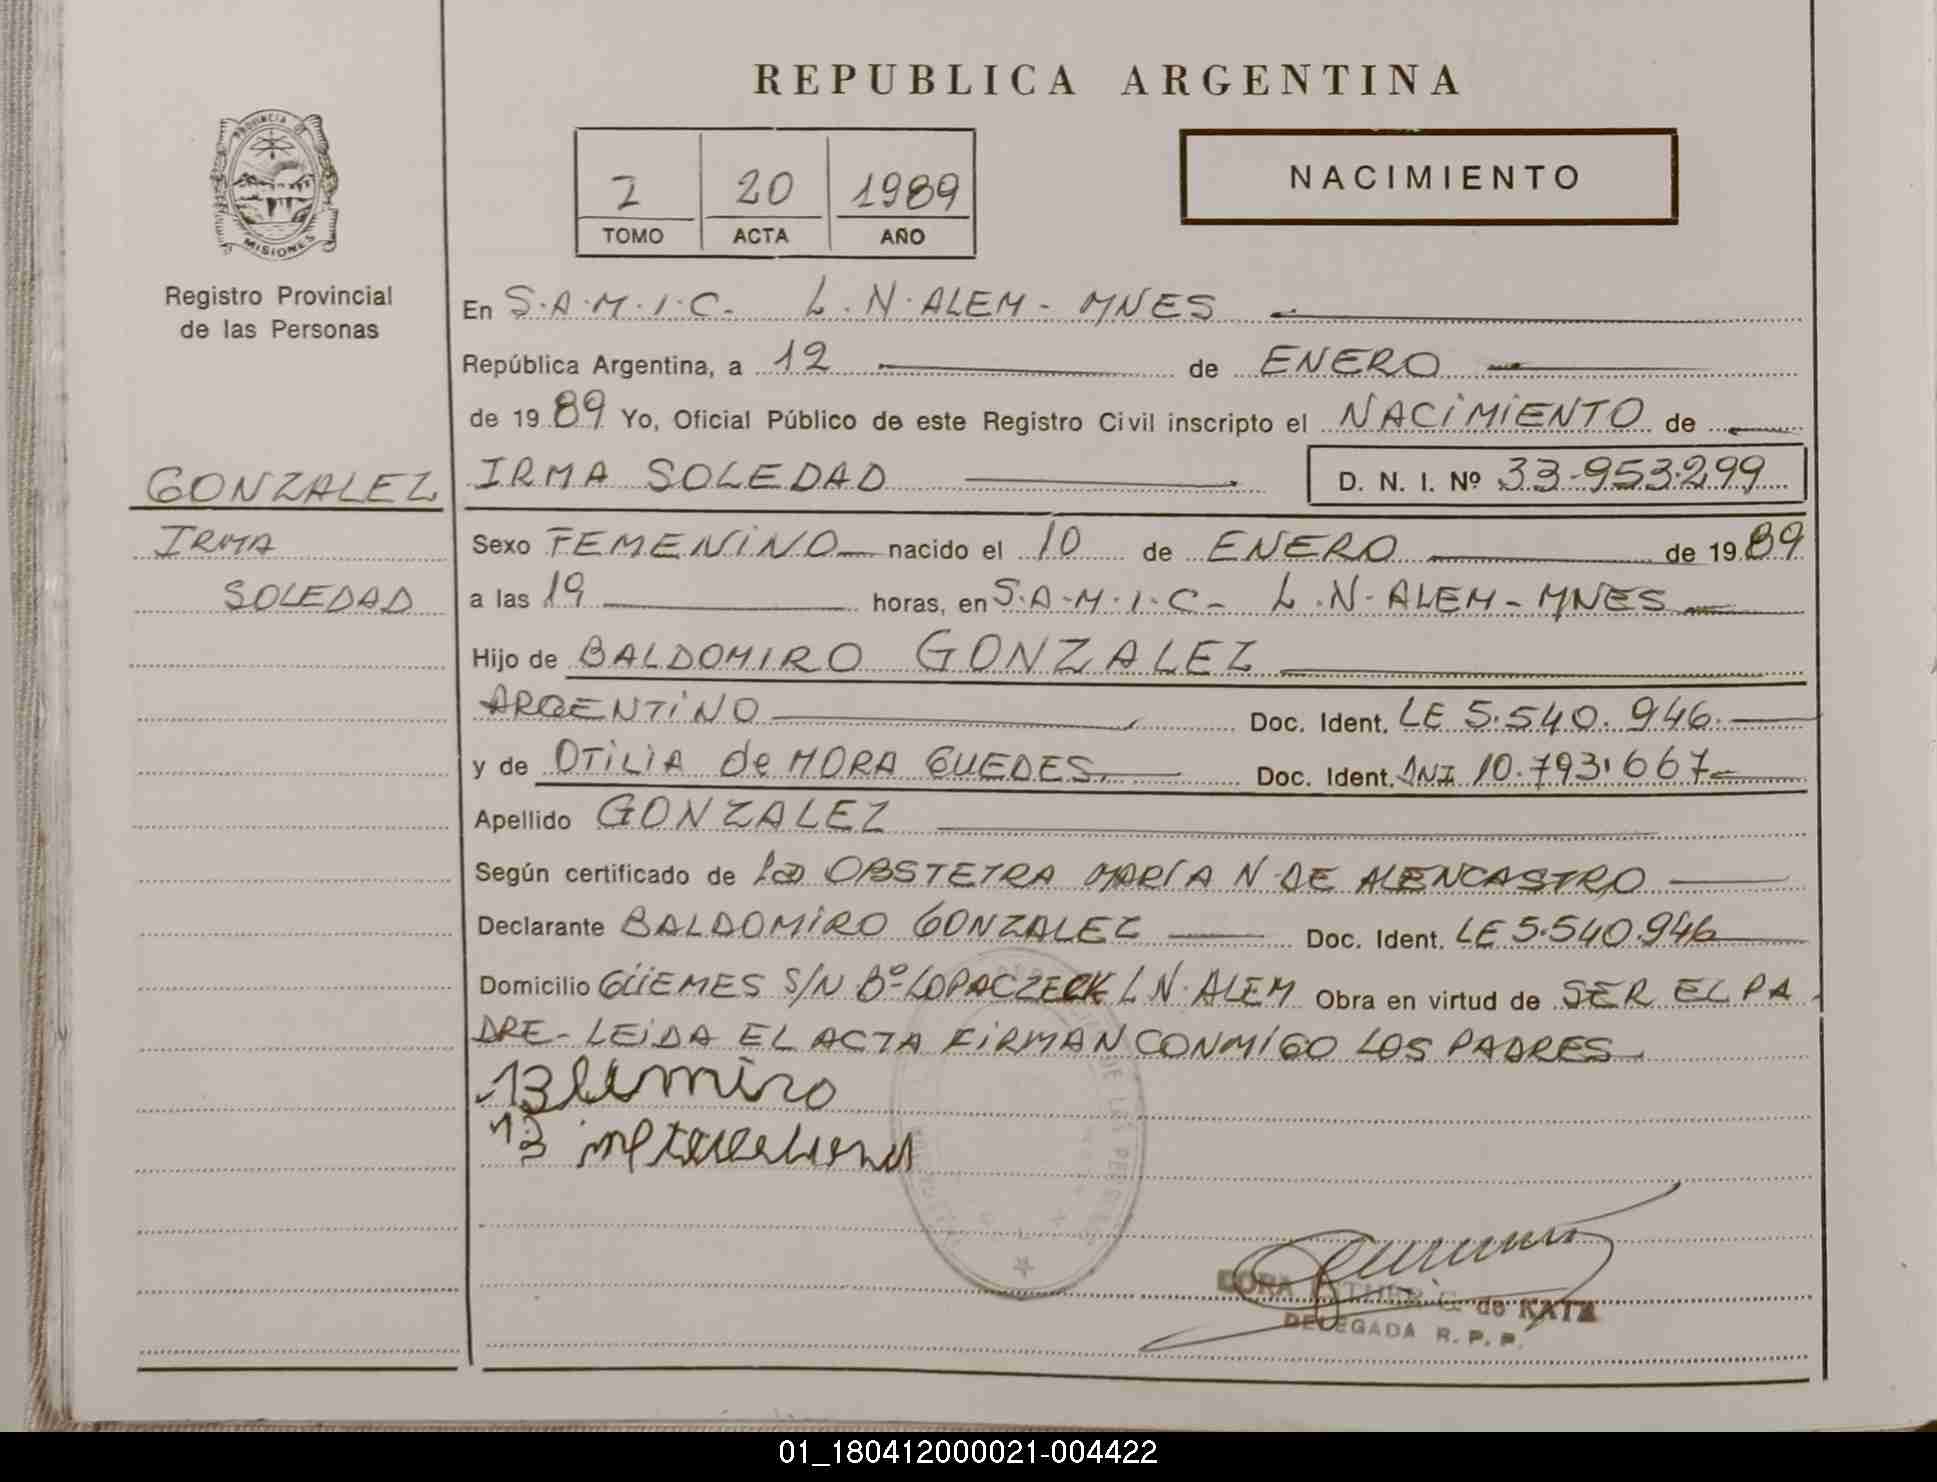 REPUBLICA ARGENTINA
PROVINCIA DE
MISIONES
Registro Provincial
de las Personas
20 1989
TOMO ACTA AÑO
NACIMIENTO
En S.A.M.I.C. L.N.ALEM - MNES
República Argentina, a 12 de ENERO
de 1989 Yo, Oficial Público de este Registro Civil inscripto el NACIMIENTO de
GONZALEZ
IRMA
SOLEDAD
IRMA SOLEDAD D. N. I. Nº 33.953.299
Sexo FEMENINO nacido el 10 de ENERO de 1989
a las 19 horas, en S.A.M.I.C. L.N.ALEM - MNES
Hijo de BALDOMIRO GONZALEZ
ARGENTINO Doc. Ident. LE 5.540.946
y de OTILIA de MORA GUEDES Doc. Ident. DNI 10.793.667
Apellido GONZALEZ
Según certificado de la OBSTETRA MARÍA N. DE ALENCASTRO
Declarante BALDOMIRO GONZALEZ Doc. Ident. LE 5.540.946
Domicilio GÜEMES S/N Bº LOPACZECK L N. ALEM Obra en virtud de SER EL PA
DRE - LEIDA EL ACTA FIRMAN CONMIGO LOS PADRES
DORA ESTHER G. de KATZ
DELEGADA R. P. P.
01_180412000021-004422